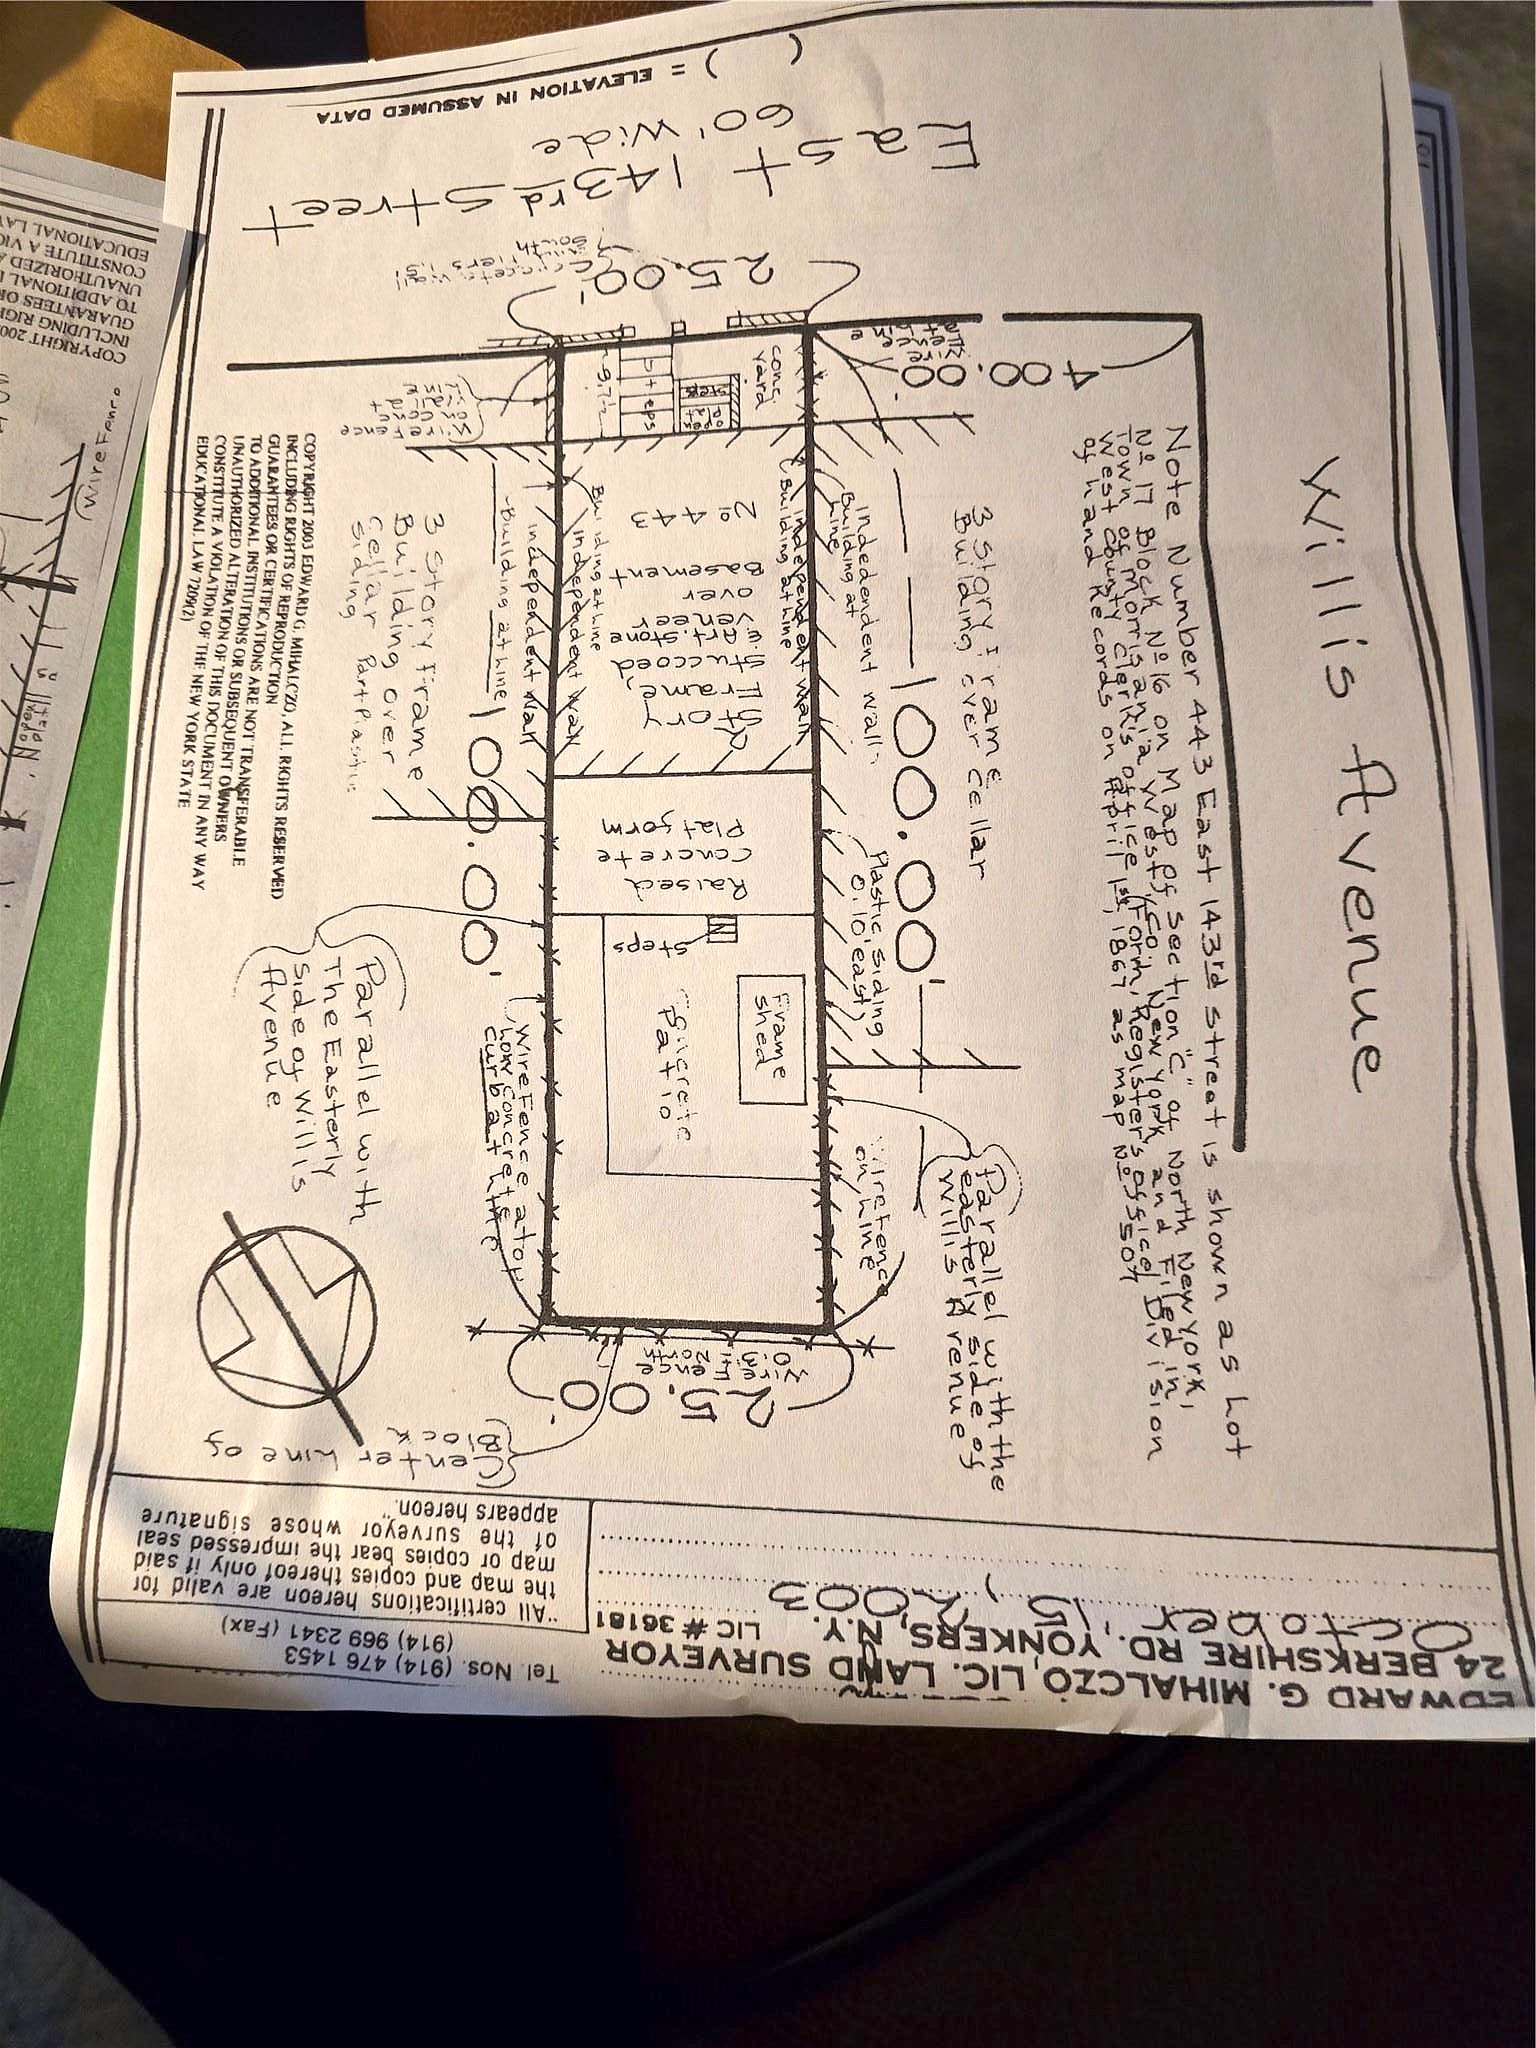 EDWARD G. MIHALCZO, LIC. LAND SURVEYOR
24 BERKSHIRE RD. YONKERS, N.Y.
LIC # 36181
October, 15, 2003
Tel. Nos. (914) 476 1453
(914) 969 2341 (Fax)
"All certifications hereon are valid for
the map and copies thereof only if said
map or copies bear the impressed seal
of the surveyor whose signature
appears hereon."
Willis Avenue
Note Number 443 East 143rd street is shown as Lot
No 17 Block No 16 on Map of Section "C" of North New York,
Town of Morrisania West Co., New York and Filed in
West County Clerk's office (Form. Register's office) Division
of Land Records on April 1st, 1867 as map No 504
400.00'
Wire
Fence
at Line
3 Story Frame
Building over Cellar
100.00'
Independent wall
Building at
Line
Plastic siding
0.10' east
Wire fence
on Line
Parallel with the
easterly side of
Willis Avenue
Center Line of
Block
25.00'
Wire Fence
0.3' North
Frame
shed
Concrete
Patio
Steps
Raised
Concrete
Platform
2
Story
Frame,
Stuccoed
& Art. stone
veneer
over
Basement
No 443
Independent wall
Building at Line
Independent wall
Building at Line
conc.
yard
open
Plat.
Steps
Steps
Independent wall
Building at Line
100.00'
3 Story Frame
Building over
Cellar Part Plastic
Siding
Wire Fence
on conc
wall at
Line
Wire Fence atop
Low Concrete
curb at Line
Parallel with
The Easterly
side of Willis
Avenue
25.00'
Concrete wall
South
East 143rd Street
60' Wide
( ) = ELEVATION IN ASSUMED DATA
COPYRIGHT 2003 EDWARD G. MIHALCZO, ALL RIGHTS RESERVED
INCLUDING RIGHTS OF REPRODUCTION.
GUARANTEES OR CERTIFICATIONS ARE NOT TRANSFERABLE
TO ADDITIONAL INSTITUTIONS OR SUBSEQUENT OWNERS
UNAUTHORIZED ALTERATION OF THIS DOCUMENT IN ANY WAY
CONSTITUTE A VIOLATION OF THE NEW YORK STATE
EDUCATIONAL LAW 7209(2)
COPYRIGHT 200
INCLUDING RIGH
GUARANTEES OR
TO ADDITIONAL I
UNAUTHORIZED A
CONSTITUTE A VIO
EDUCATIONAL LA
Wire Fence